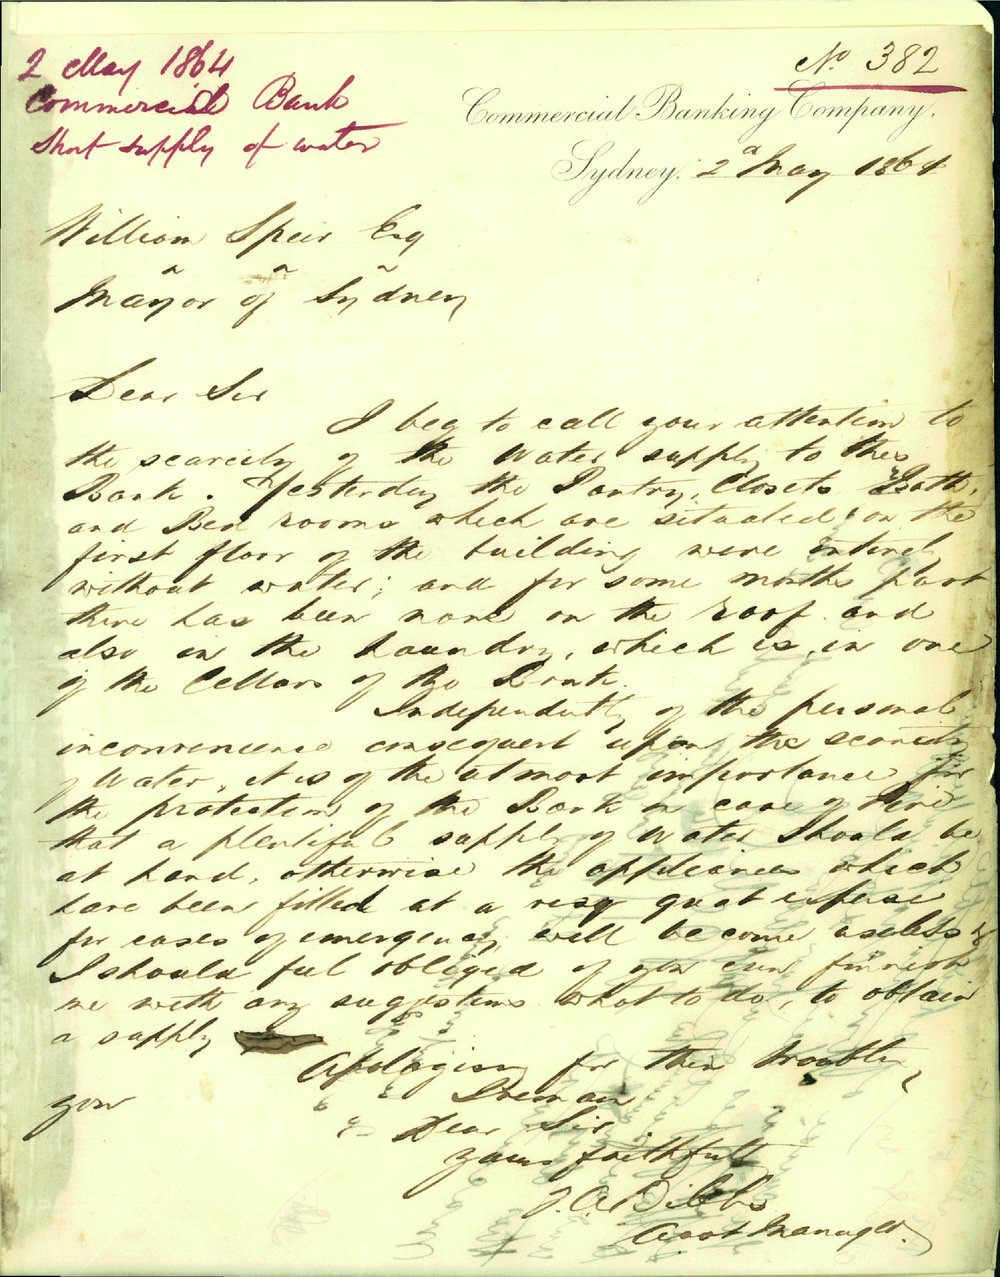 2 May 1864
Commercial Bank
Short supply of water
No. 382
Commercial Banking Company.
Sydney. 2d May 1864
William Speir Esq
Mayor of Sydney
Dear Sir
I beg to call your attention to
the scarcity of the Water supply to this
Bank. Yesterday the Pantry, Closets Bath,
and Bed rooms which are situated on the
first floor of the building were entirely
without water; and for some months past
there has been none on the roof and
also in the Laundry, which is in one
of the Cellars of the Bank.
Independently of the personal
inconvenience consequent upon the scarcity
of Water, it is of the utmost importance for
the protection of the Bank in case of Fire
that a plentiful supply of Water should be
at hand, otherwise the appliances which
have been fitted at a very great expense
for cases of emergency will become useless &
I should feel obliged if you can furnish
me with any suggestions what to do, to obtain
a supply
Apologising for thus troubling
you
I remain
Dear Sir
Yours faithfully
J. A. Dibbs
Asst Manager.